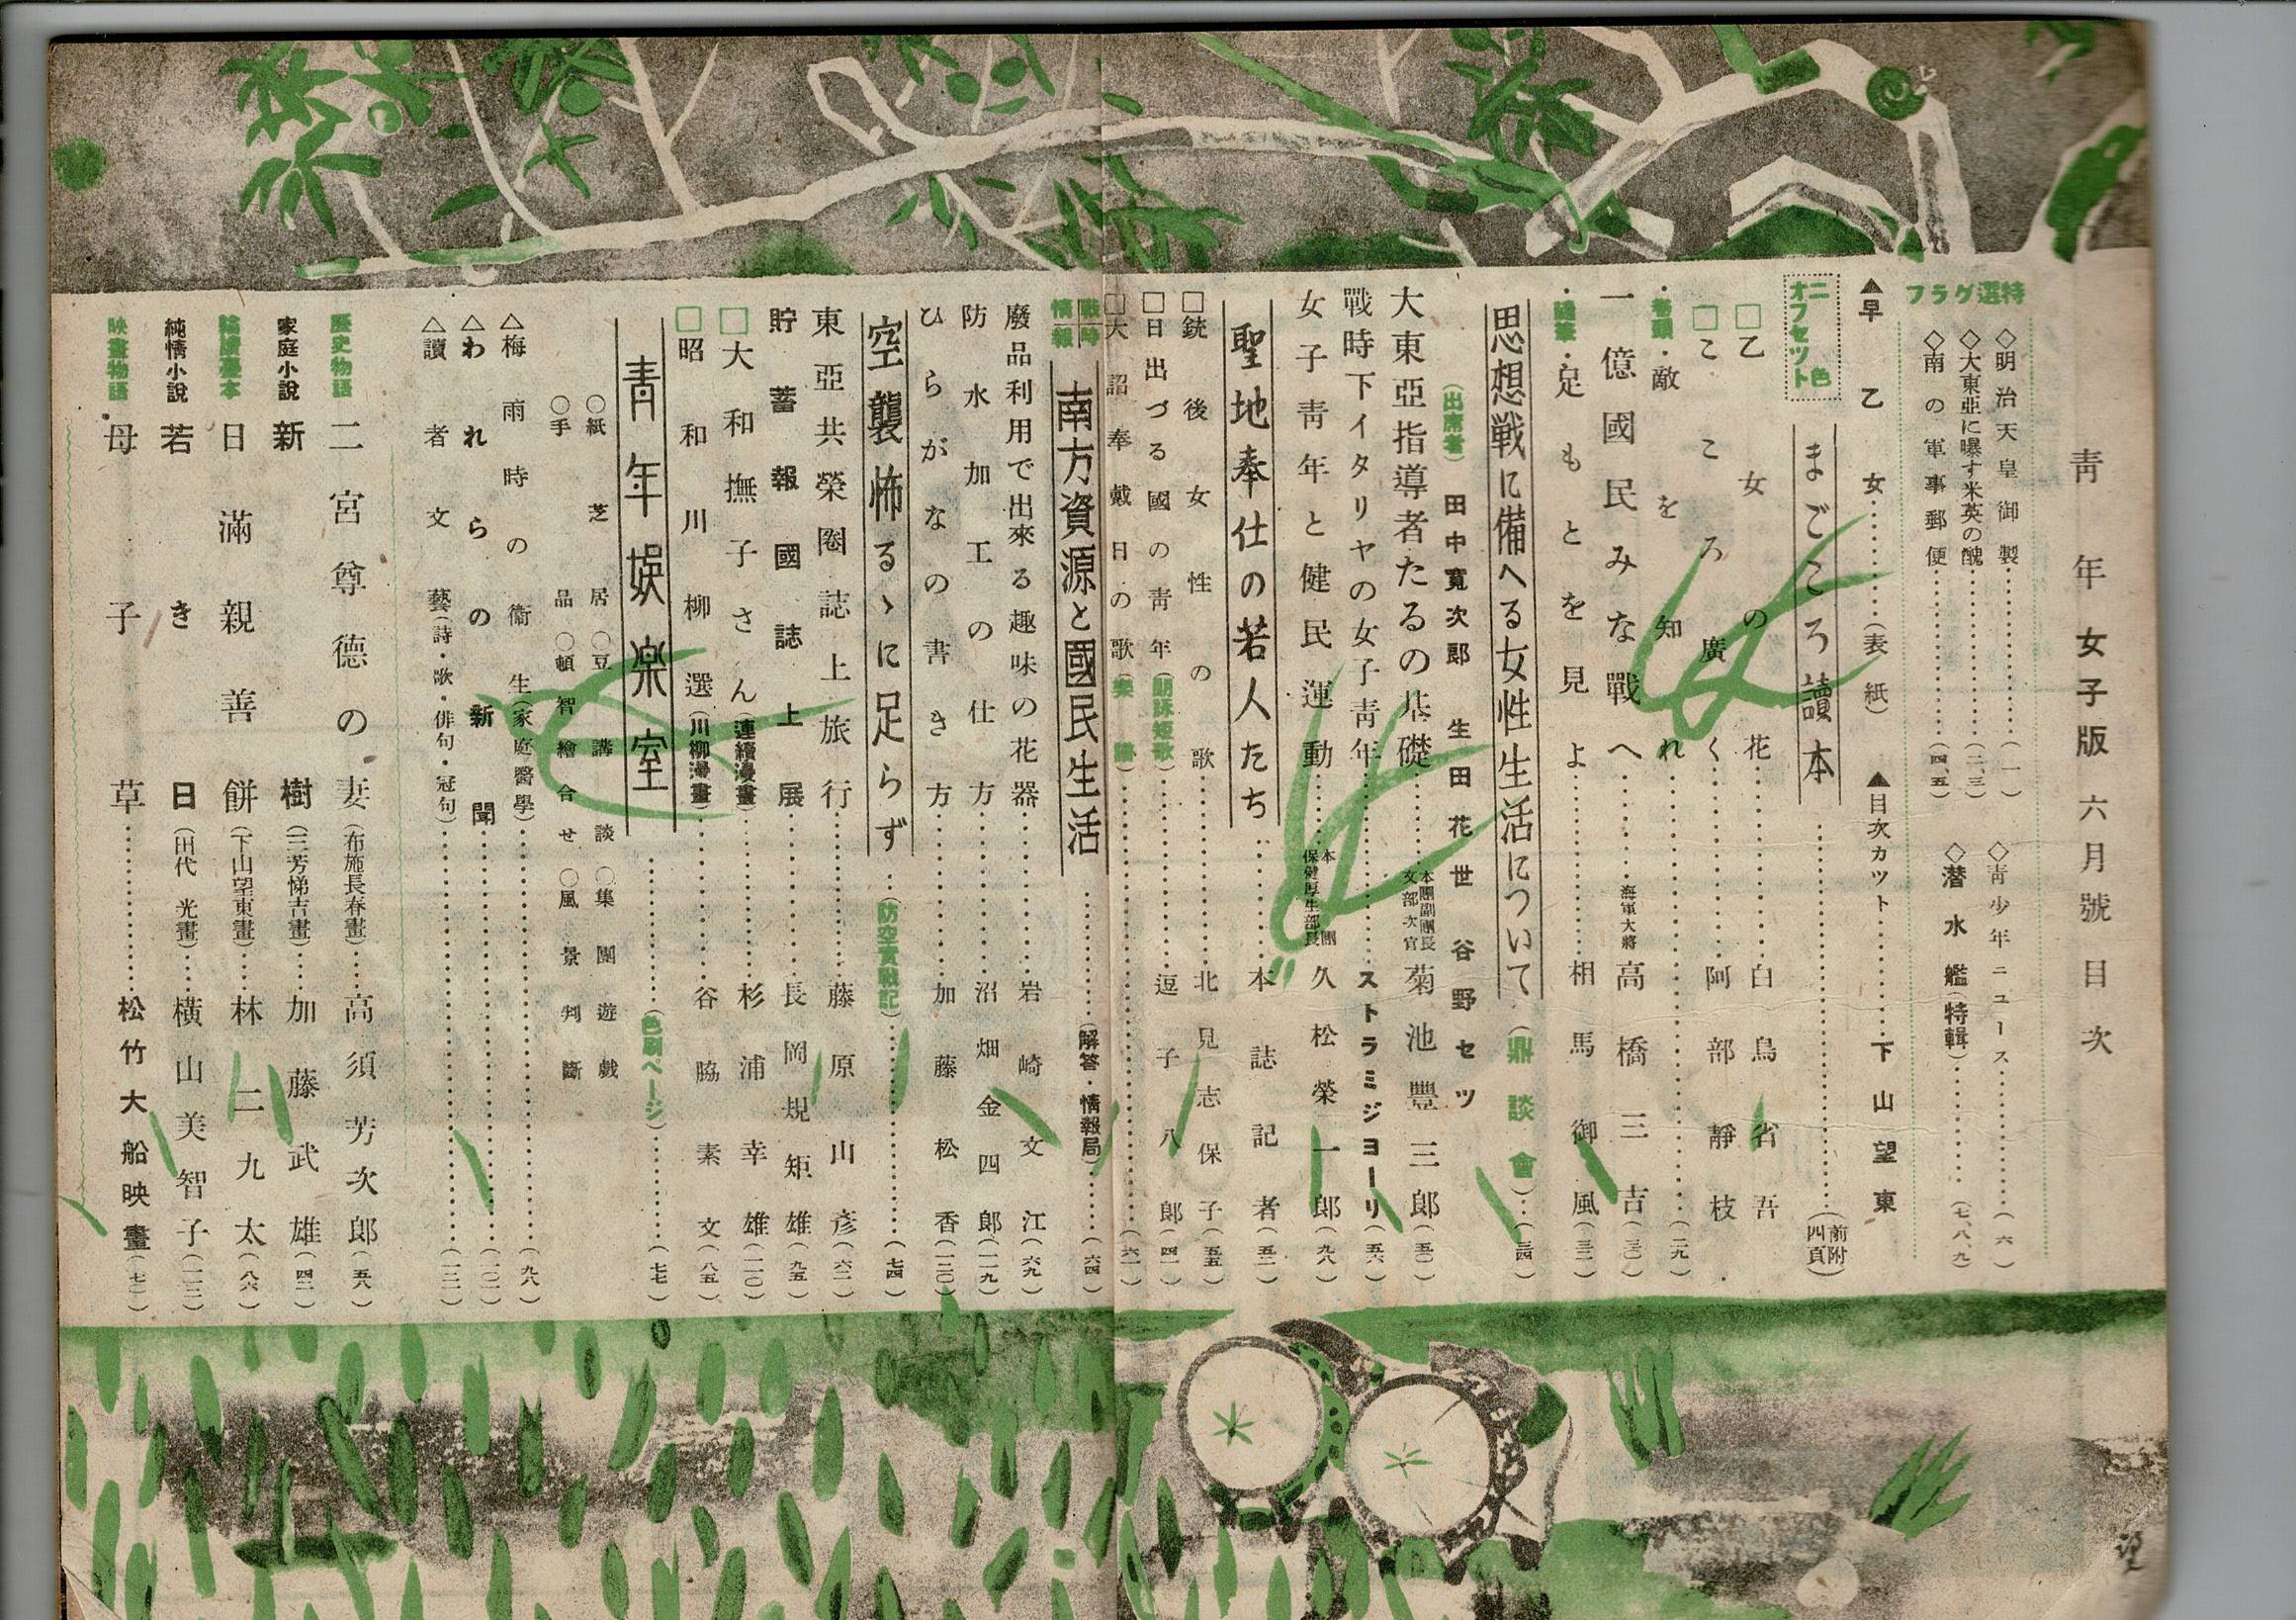 青年 女子版 六月號 目次
特選グラフ
◇明治天皇御製……(一)
◇大東亞に曝す米英の醜……(二、三)
◇南の軍事郵便……(四、五)
◇靑少年ニュース……(六)
◇潜水艦(特輯)……(七、八、九)
▲早乙女……(表紙)
▲目次カット……下山望東
二色オフセット
まごころ讀本……(前附四頁)
□乙女の花……白鳥省吾
□こころ廣く……阿部靜枝
・卷頭・敵を知れ……(二九)
一億國民みな戰へ……海軍大將 高橋三吉(三〇)
・隨筆・足もとを見よ……相馬御風(三二)
思想戰に備へる女性生活について(鼎談會)……(三四)
(出席者) 田中寬次郎 生田花世 谷野セツ
大東亞指導者たるの基礎……本團副團長 文部次官 菊池豐三郎(五〇)
戰時下イタリヤの女子靑年……ストラミジョーリ(五六)
女子靑年と健民運動……本團保健厚生部長 久松榮一郎(九八)
聖地奉仕の若人たち……本誌記者(五二)
□銃後女性の歌……北見志保子(五五)
□日出づる國の靑年(朗詠短歌)……逗子八郎(四一)
□大詔奉戴日の歌(樂譜)……(六一)
戰時情報
南方資源と國民生活……(解答・情報局)……(六四)
廢品利用で出來る趣味の花器……岩崎文江(六九)
防水加工の仕方……沼畑金四郎(一一九)
ひらがなの書き方……加藤松香(一二〇)
空襲怖るゝに足らず……(防空實戰記)……(七四)
東亞共榮圈誌上旅行……藤原山彥(六二)
貯蓄報國誌上展……長岡規矩雄(九五)
□大和撫子さん(連續漫畫)……杉浦幸雄(一一〇)
□昭和川柳選(川柳漫畫)……谷脇素文(八五)
靑年娛樂室……(色刷ページ)……(七七)
○紙芝居 ○豆講談 ○集團遊戲
○手品 ○頓智繪合せ ○風景判斷
△梅雨時の衞生(家庭醫學)……(九八)
△われらの新聞……(一〇二)
△讀者文藝(詩・歌・俳句・冠句)……(一二二)
歷史物語 二宮尊德の妻(布施長春畫)……高須芳次郎(五八)
家庭小說 新樹(三芳悌吉畫)……加藤武雄(四二)
繪讀漫本 日滿親善餅(下山望東畫)……林二九太(八六)
純情小說 若き日(田代光畫)……橫山美智子(一一二)
映畫物語 母子草……松竹大船映畫(七〇)
望